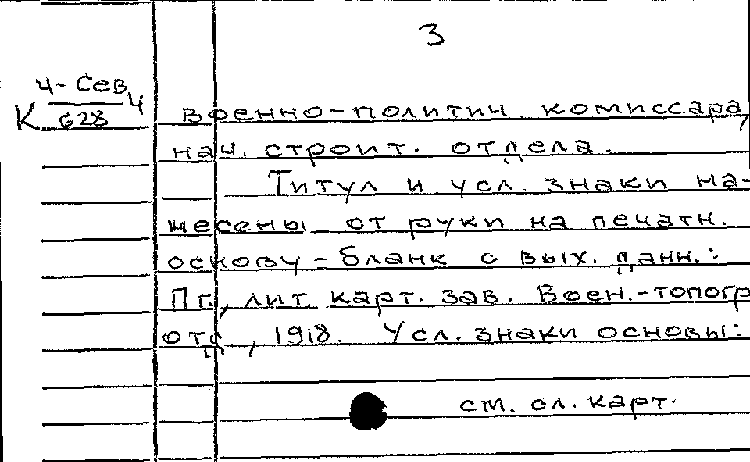 3
Ч-Сев
К 628 Ч
военно-политич. комиссара,
нач. строит. отдела.
Титул и усл. знаки на-
несены от руки на печатн.
основу-бланк с вых. данн.:
Пг., лит. карт. зав. Воен.-топогр
отд, 1918. Усл. знаки основы:
см. сл. карт.